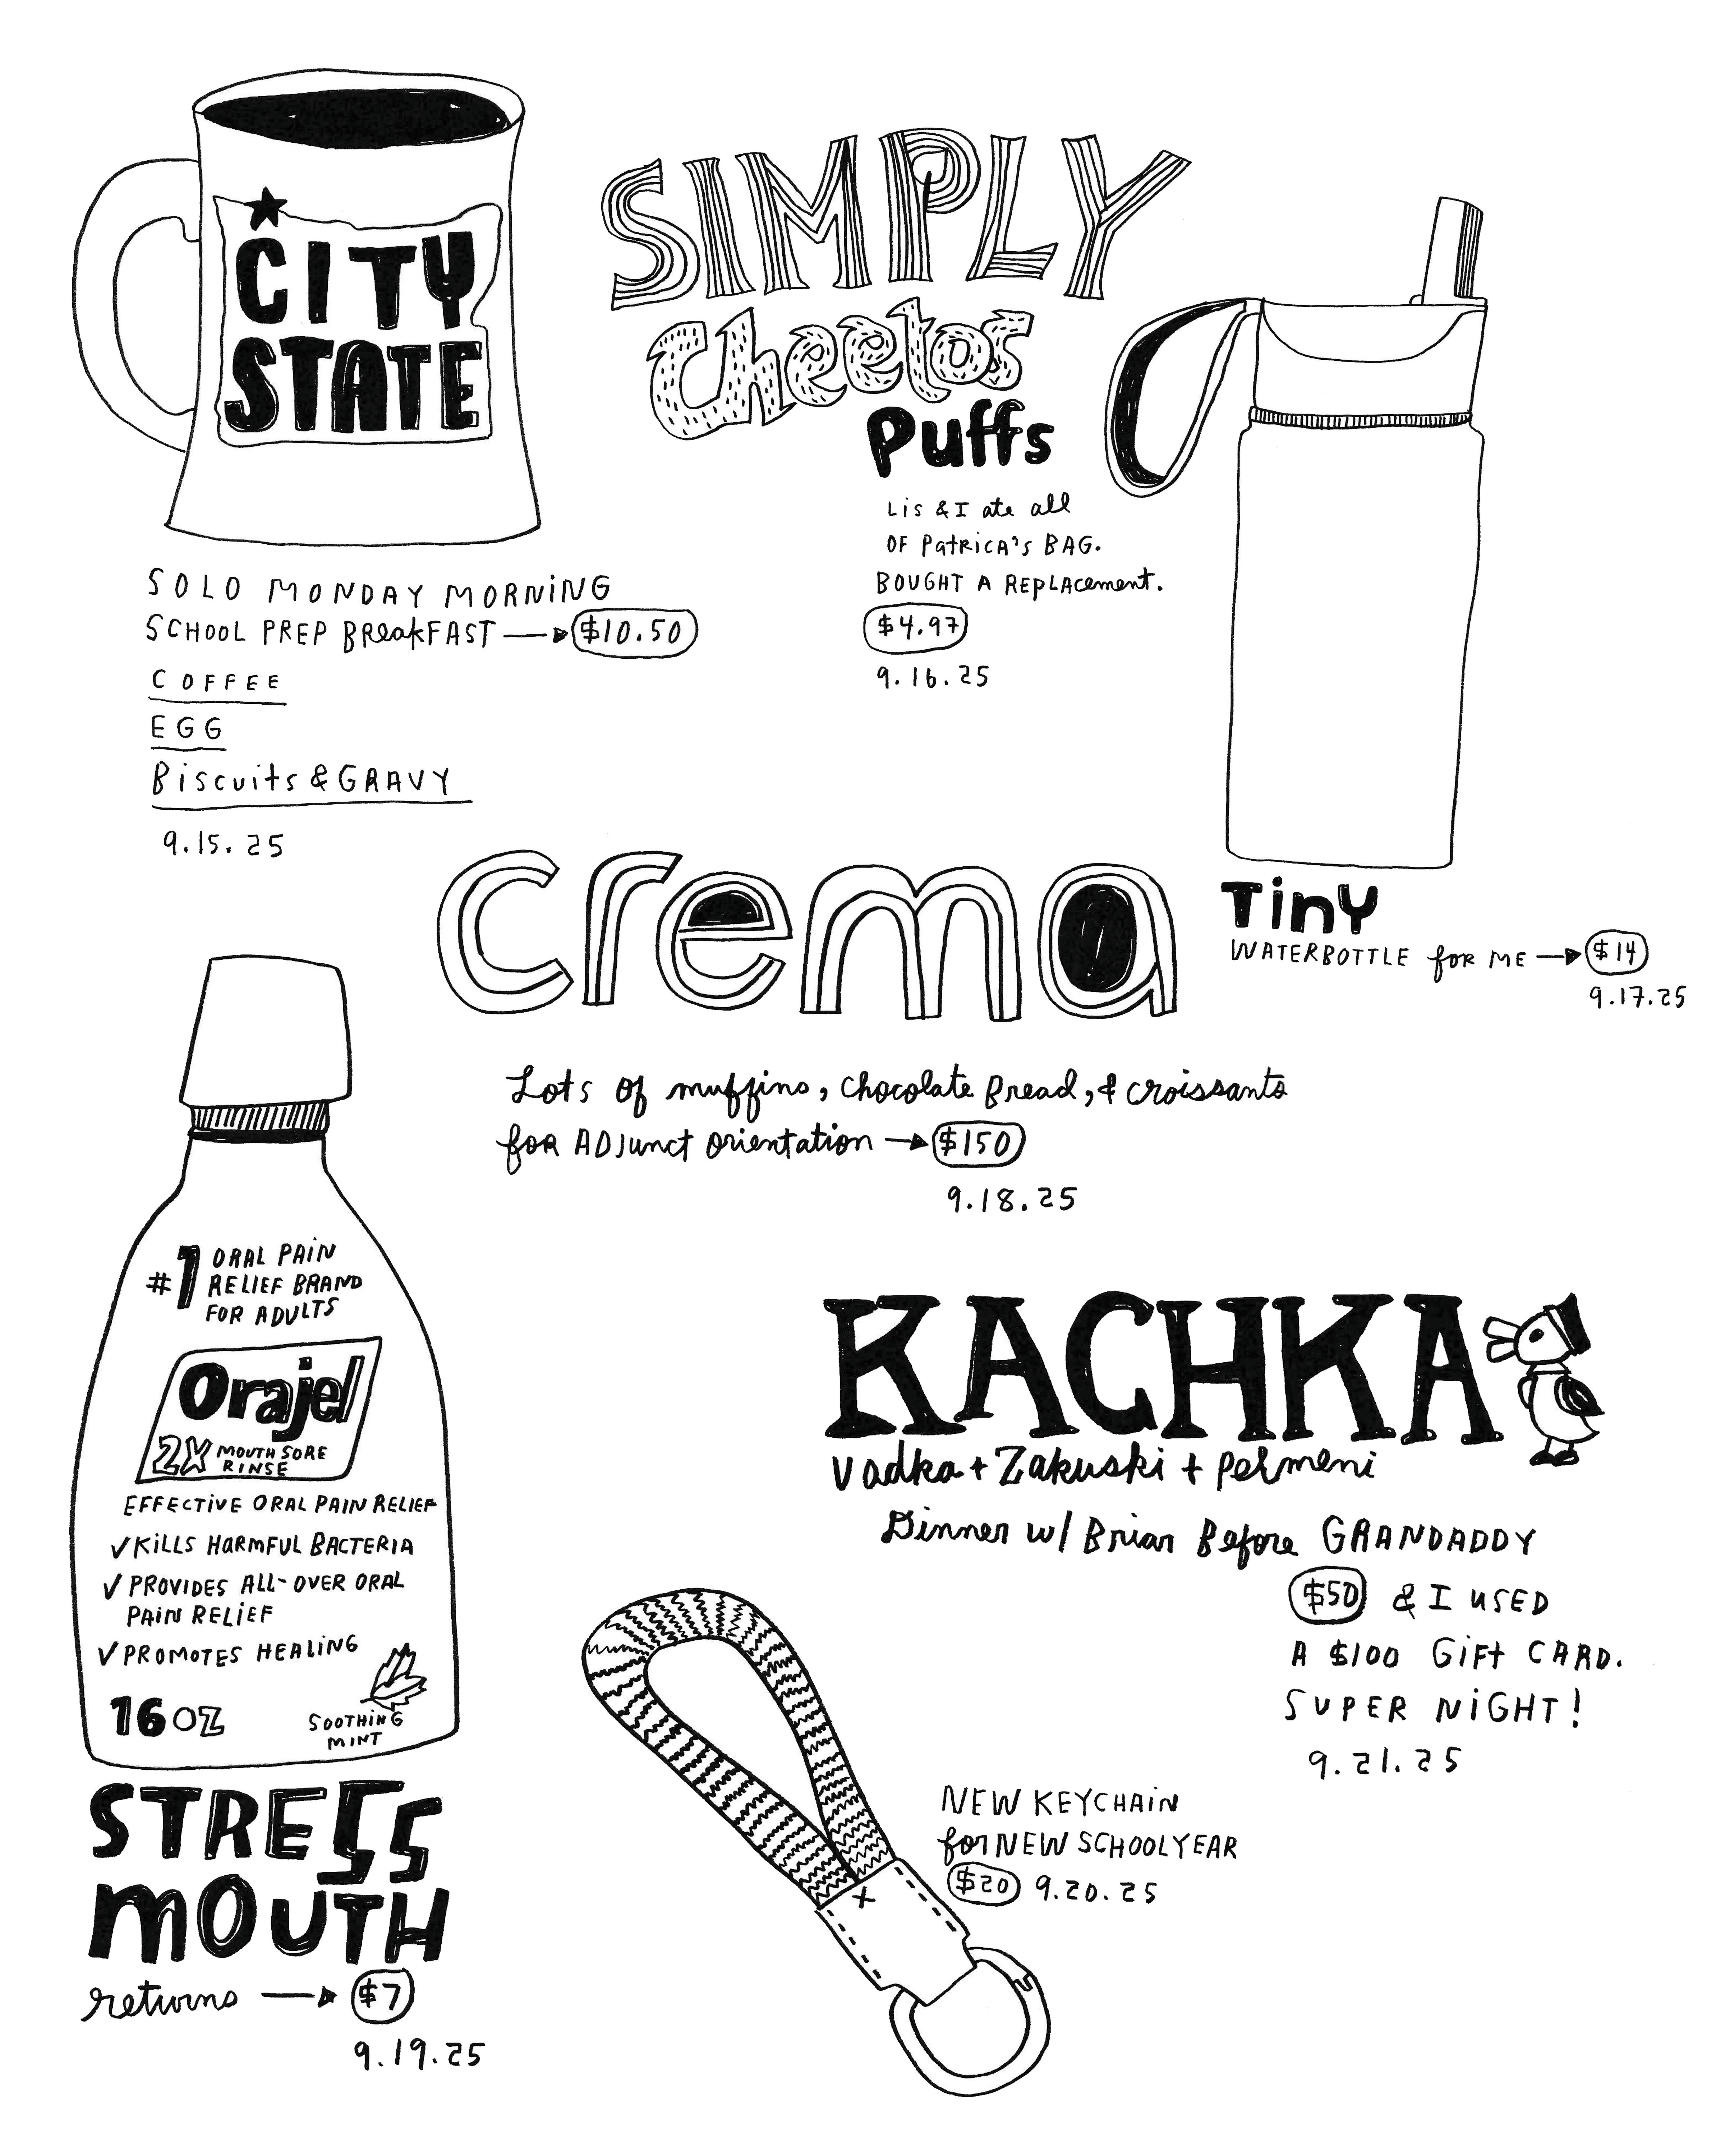 CITY
STATE
SOLO MONDAY MORNING
SCHOOL PREP BREAKFAST → $10.50
COFFEE
EGG
Biscuits & GRAVY
9.15.25
SIMPLY
Cheetos
Puffs
Lis & I ate all
OF PATRICA'S BAG.
BOUGHT A REPLACEMENT.
$4.97
9.16.25
Tiny
WATERBOTTLE for ME → $14
9.17.25
crema
Lots of muffins, chocolate Bread, & croissants
for ADJunct orientation → $150
9.18.25
#1 ORAL PAIN
RELIEF BRAND
FOR ADULTS
Orajel
2X MOUTH SORE
RINSE
EFFECTIVE ORAL PAIN RELIEF
✓ KILLS HARMFUL BACTERIA
✓ PROVIDES ALL-OVER ORAL
PAIN RELIEF
✓ PROMOTES HEALING
16 OZ
SOOTHING
MINT
STRESS
MOUTH
returns → $7
9.19.25
KACHKA
Vodka + Zakuski + Pelmeni
Dinner w/ Brian Before GRANDADDY
$50 & I USED
A $100 Gift CARD.
SUPER NIGHT!
9.21.25
NEW KEYCHAIN
for NEW SCHOOL YEAR
$20 9.20.25